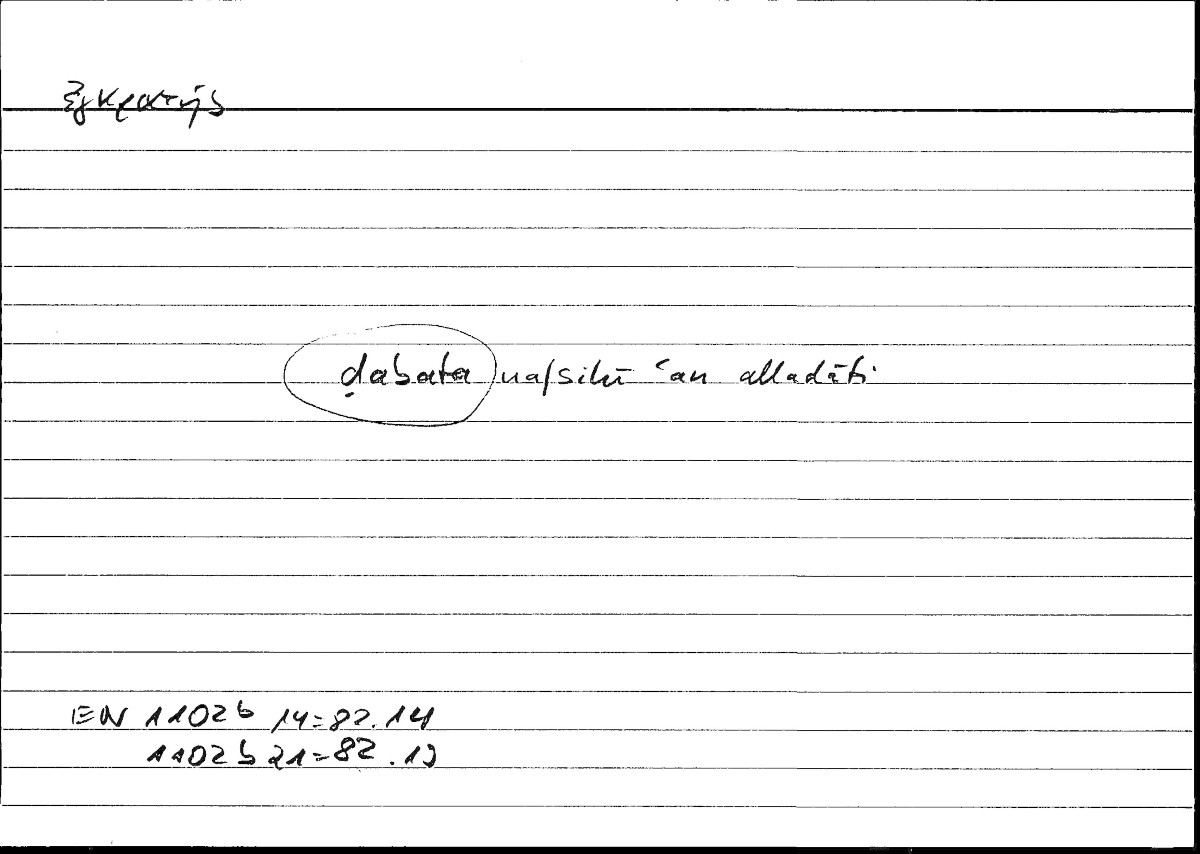 ἐγκρατής
ḍabata nafsihī ʿan alladāti
EN 1102b 14=82.14
1102b 21=82.19